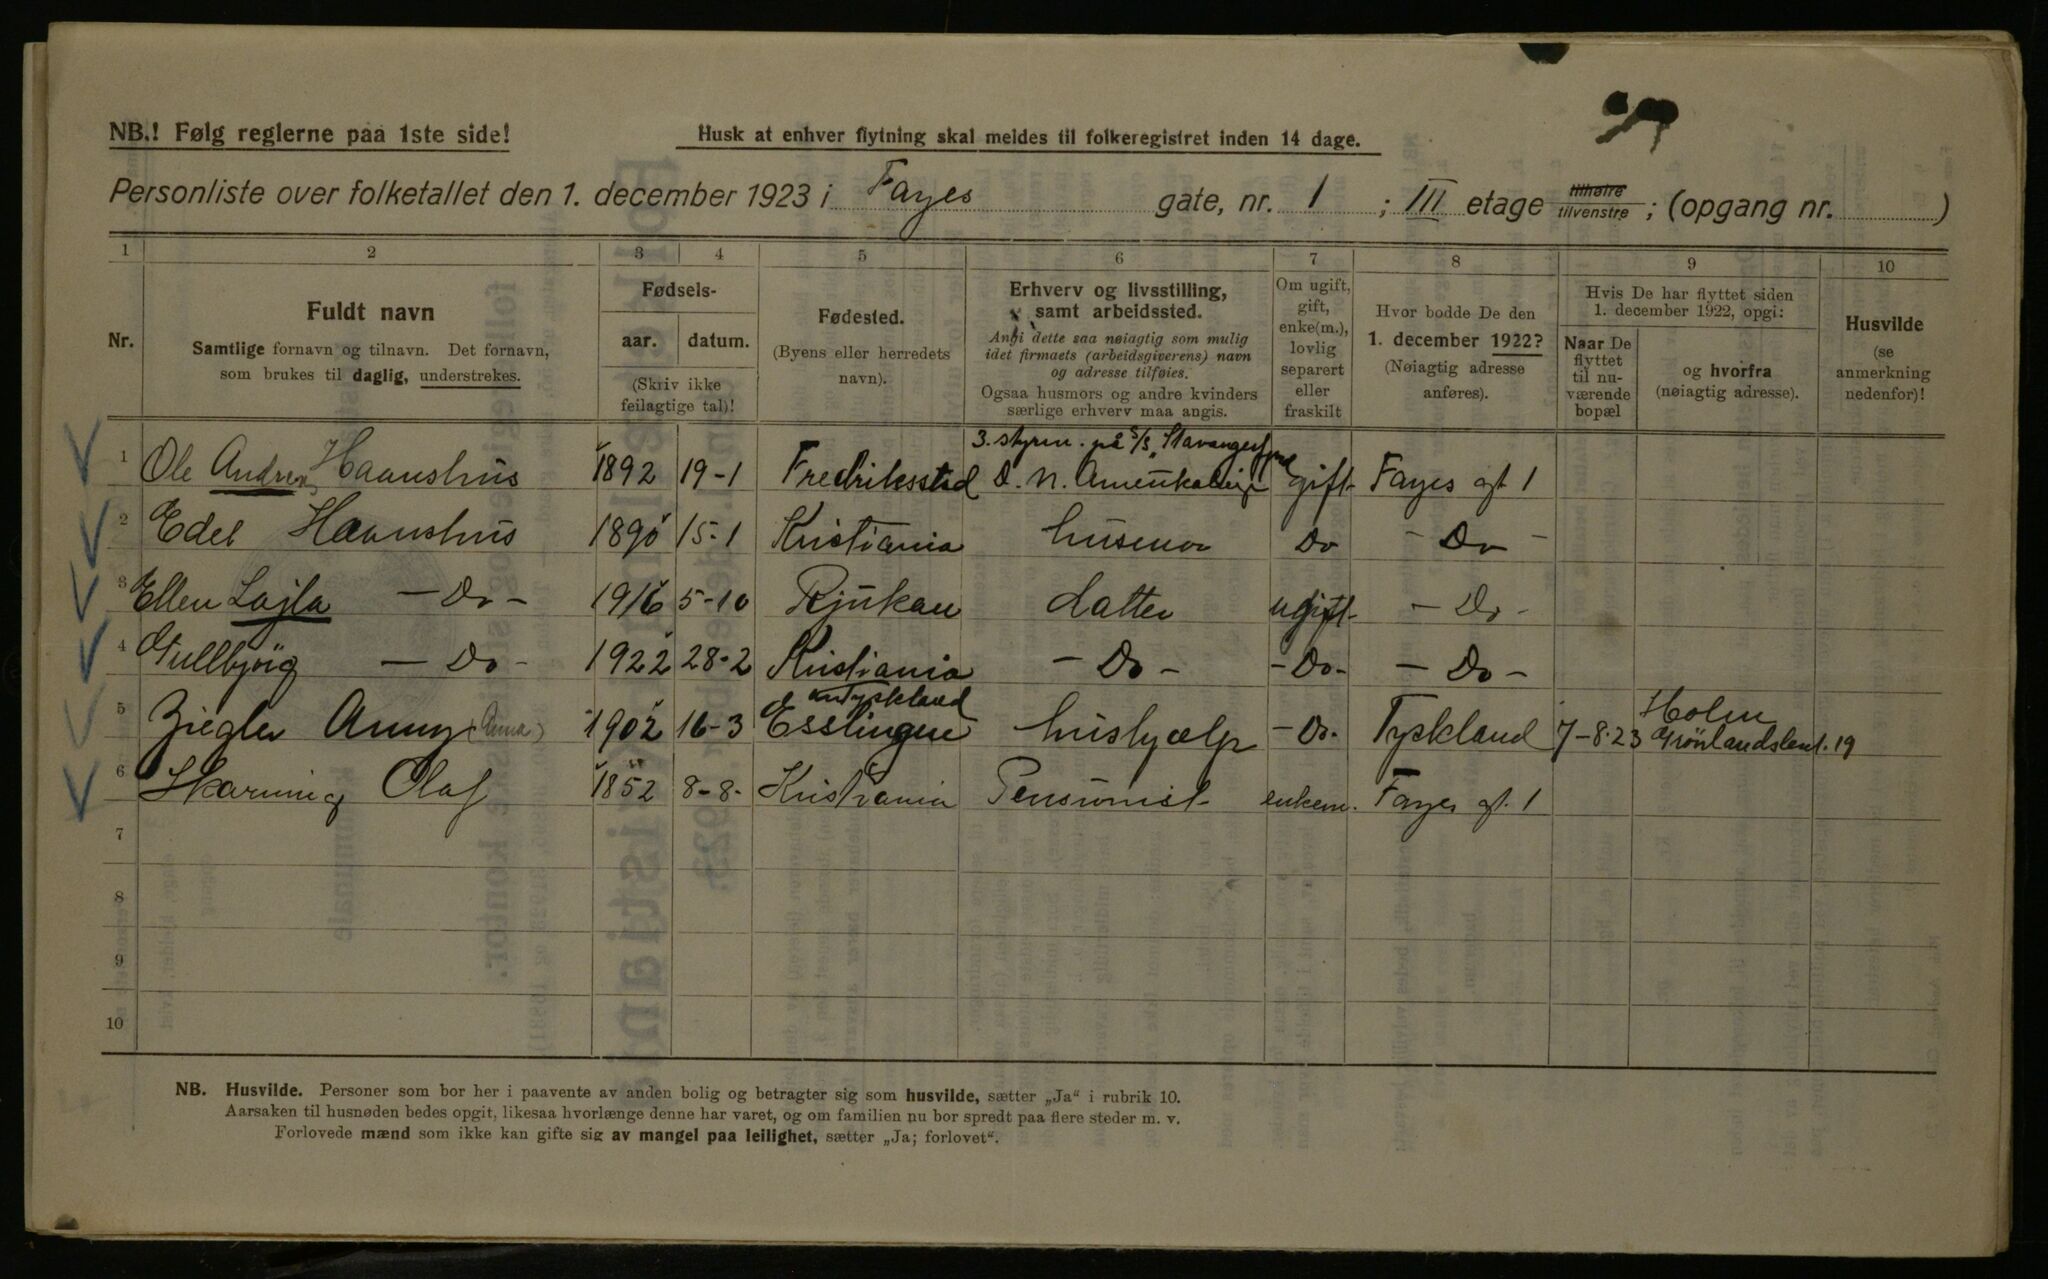 NB.! Følg reglerne paa 1ste side!
Husk at enhver flytning skal meldes til folkeregistret inden 14 dage.
Personliste over folketallet den 1. december 1923 i Fayes gate, nr. 1 ; III etage tilhøire tilvenstre ; (opgang nr. )
1 2 3 4 5 6 7 8 9 10
Nr.
Fuldt navn
Samtlige fornavn og tilnavn. Det fornavn,
som brukes til daglig, understrekes.
Fødsels-
aar. datum.
(Skriv ikke
feilagtige tal)!
Fødested.
(Byens eller herredets
navn).
Erhverv og livsstilling,
samt arbeidssted.
Angi dette saa nøiagtig som mulig
idet firmaets (arbeidsgiverens) navn
og adresse tilføies.
Ogsaa husmors og andre kvinders
særlige erhverv maa angis.
Om ugift,
gift,
enke(m.),
lovlig
separert
eller
fraskilt
Hvor bodde De den
1. december 1922?
(Nøiagtig adresse
anføres).
Hvis De har flyttet siden
1. december 1922, opgi:
Naar De
flyttet
til nu-
værende
bopæl
og hvorfra
(nøiagtig adresse).
Husvilde
(se
anmerkning
nedenfor)!
3. styrm. på S/S "Stavangerfjord
1 Ole Andreas Haanshus 1892 19-1 Fredriksstad D. N. Amerikalinje gift Fayes gt 1
2 Edel Haanshus 1890 15-1 Kristiania husmor Do - Do -
3 Ellen Lajla - Do - 1916 5-10 Rjukan datter ugift - Do -
4 Gullbjörg - Do - 1922 28-2 Kristiania - Do - - Do - - Do -
Tyskland
5 Ziegler Anny (Anna) 1902 16-3 Esslingen hushjælp - Do - Tyskland 7-8-23 Holm Grönlandsleret. 19
6 Skarning Olaf 1852 8-8- Kristiania Pensionist enkem. Fayes gt. 1
7
8
9
10
NB. Husvilde. Personer som bor her i paavente av anden bolig og betragter sig som husvilde, sætter „Ja“ i rubrik 10.
Aarsaken til husnøden bedes opgit, likesaa hvorlænge denne har varet, og om familien nu bor spredt paa flere steder m. v.
Forlovede mænd som ikke kan gifte sig av mangel paa leilighet, sætter „Ja; forlovet“.